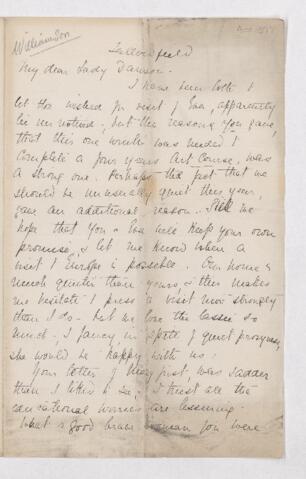 Williamson
My dear Lady Dawson
I have been loth to
let the wished for visit of Eva, apparently
lie unnoticed, but the reasons you gave,
that this one winter was needed to
complete a four years Art Course, was
a strong one. Perhaps the fact that we
should be unusually quiet this year,
gave an additional reason. Still we
hope that You & Eva will keep your own
promise, & let me know when a
visit to Europe is possible. Our home is
much quieter than yours, & this makes
me hesitate to press a visit more strongly
than I do - but we love the lassie so
much. I fancy, in spite of quiet prosyness,
she would be happy with us.
Your letter of May just, was sadder
than I liked to see, I trust all the
educational worries are lessening.
What a good brave woman you were